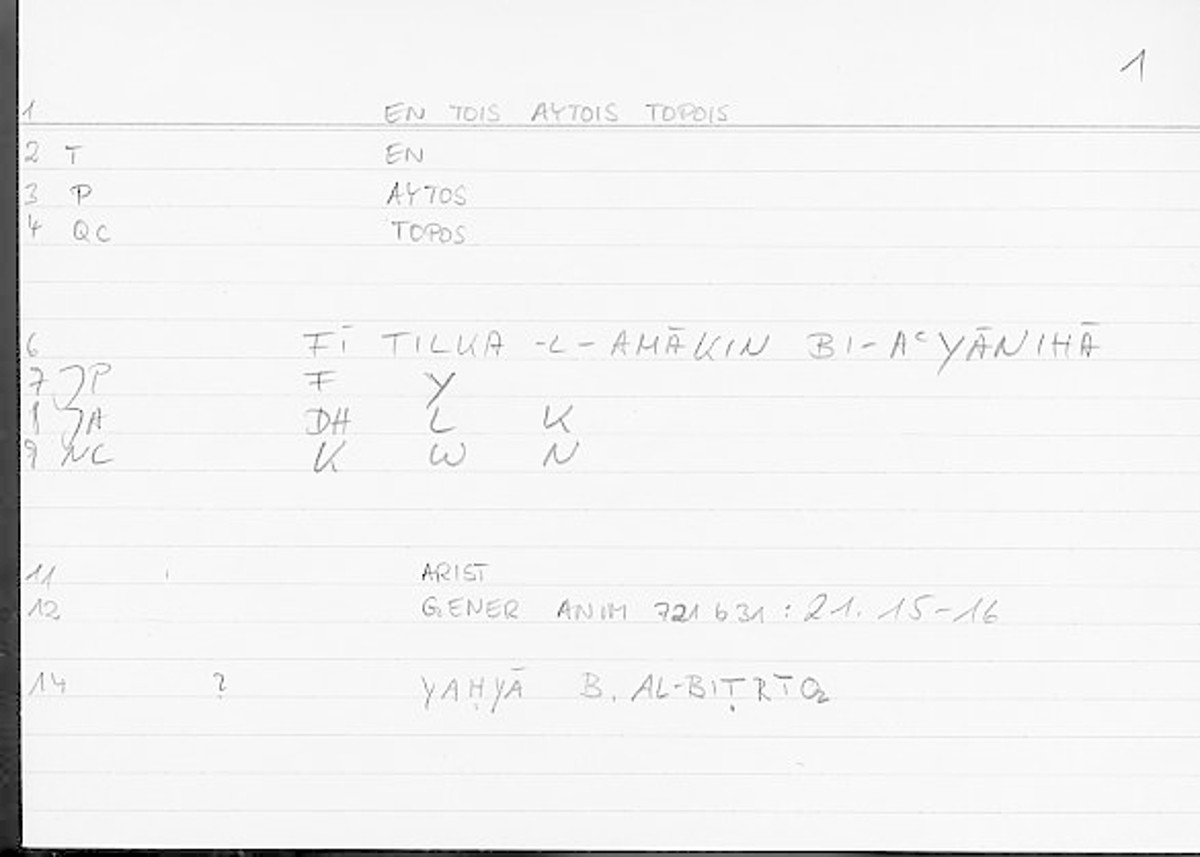 1
1 EN TOIS AYTOIS TOPOIS
2 T EN
3 P AYTOS
4 QC TOPOS
6 FĪ TILKA -L-AMĀKIN BI-AᶜYĀNIHĀ
7 JP F Y
8 JA DH L K
9 NC K W N
11 ARIST
12 GENER ANIM 721 b31 : 21. 15-16
14 ? YAḤYĀ B. AL-BIṬRĪQ